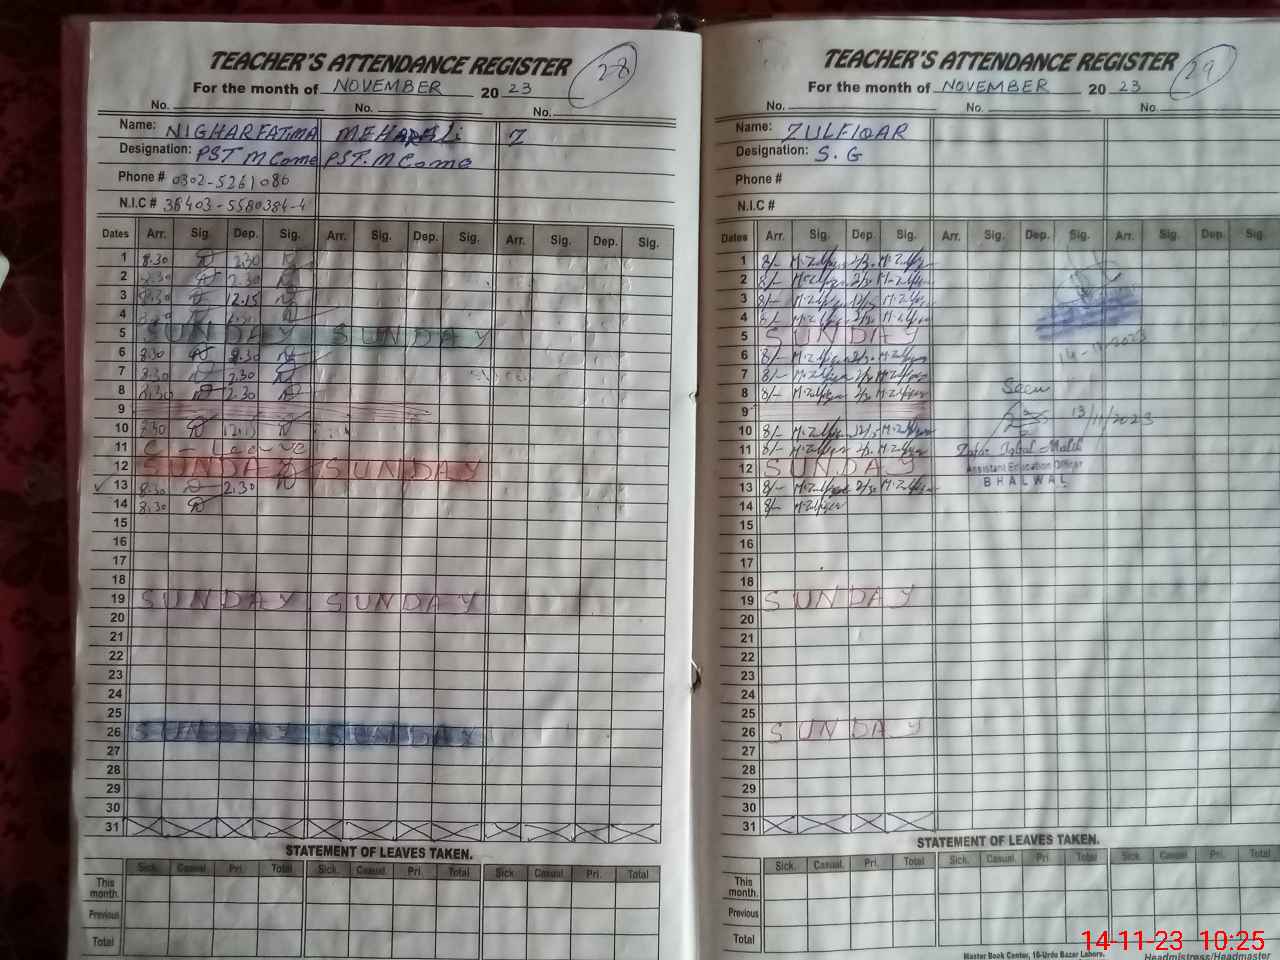 TEACHER'S ATTENDANCE REGISTER 28
For the month of NOVEMBER 20 23
No. No. No.
Name: NIGHARFATIMA MEHARALi Z
Designation: PST MCome PST. MCome
Phone # 0302-5261086
N.I.C # 38403-5580384-4
Dates Arr. Sig. Dep. Sig. Arr. Sig. Dep. Sig. Arr. Sig. Dep. Sig.
1 8.30 2.30
2 8.30 2.30
3 8.30 12.15
4
5 SUNDAY SUNDAY
6 8.30 2.30
7 8.30 2.30
8 8.30 2.30
9
10 12.15
11 C - Leave
12 SUNDAY SUNDAY
13 8.30 2.30
14 8.30
15
16
17
18
19 SUNDAY SUNDAY
20
21
22
23
24
25
26 SUNDAY SUNDAY
27
28
29
30
31
STATEMENT OF LEAVES TAKEN.
Sick. Casual. Pri. Total Sick. Casual. Pri. Total Sick. Casual. Pri. Total
This month.
Previous
Total
TEACHER'S ATTENDANCE REGISTER 29
For the month of NOVEMBER 20 23
No. No. No.
Name: ZULFIQAR
Designation: S.G
Phone #
N.I.C #
Dates Arr. Sig. Dep. Sig. Arr. Sig. Dep. Sig. Arr. Sig. Dep. Sig.
1 8/-
2 8/-
3 8/-
4 8/-
5 SUNDAY
6 8/-
7 8/-
8 8/-
9
10 8/-
11 8/-
12 SUNDAY
13 8/-
14 8/-
15
16
17
18
19 SUNDAY
20
21
22
23
24
25
26 SUNDAY
27
28
29
30
31
14-11-2023
Seen
13/11/2023
Zafar Iqbal Malik
Assistant Education Officer
BHALWAL
STATEMENT OF LEAVES TAKEN.
Sick. Casual. Pri. Total Sick. Casual. Pri. Total Sick. Casual. Pri. Total
This month.
Previous
Total
Master Book Center, 16-Urdu Bazar Lahore.
Headmistress/Headmaster
14-11-23 10:25